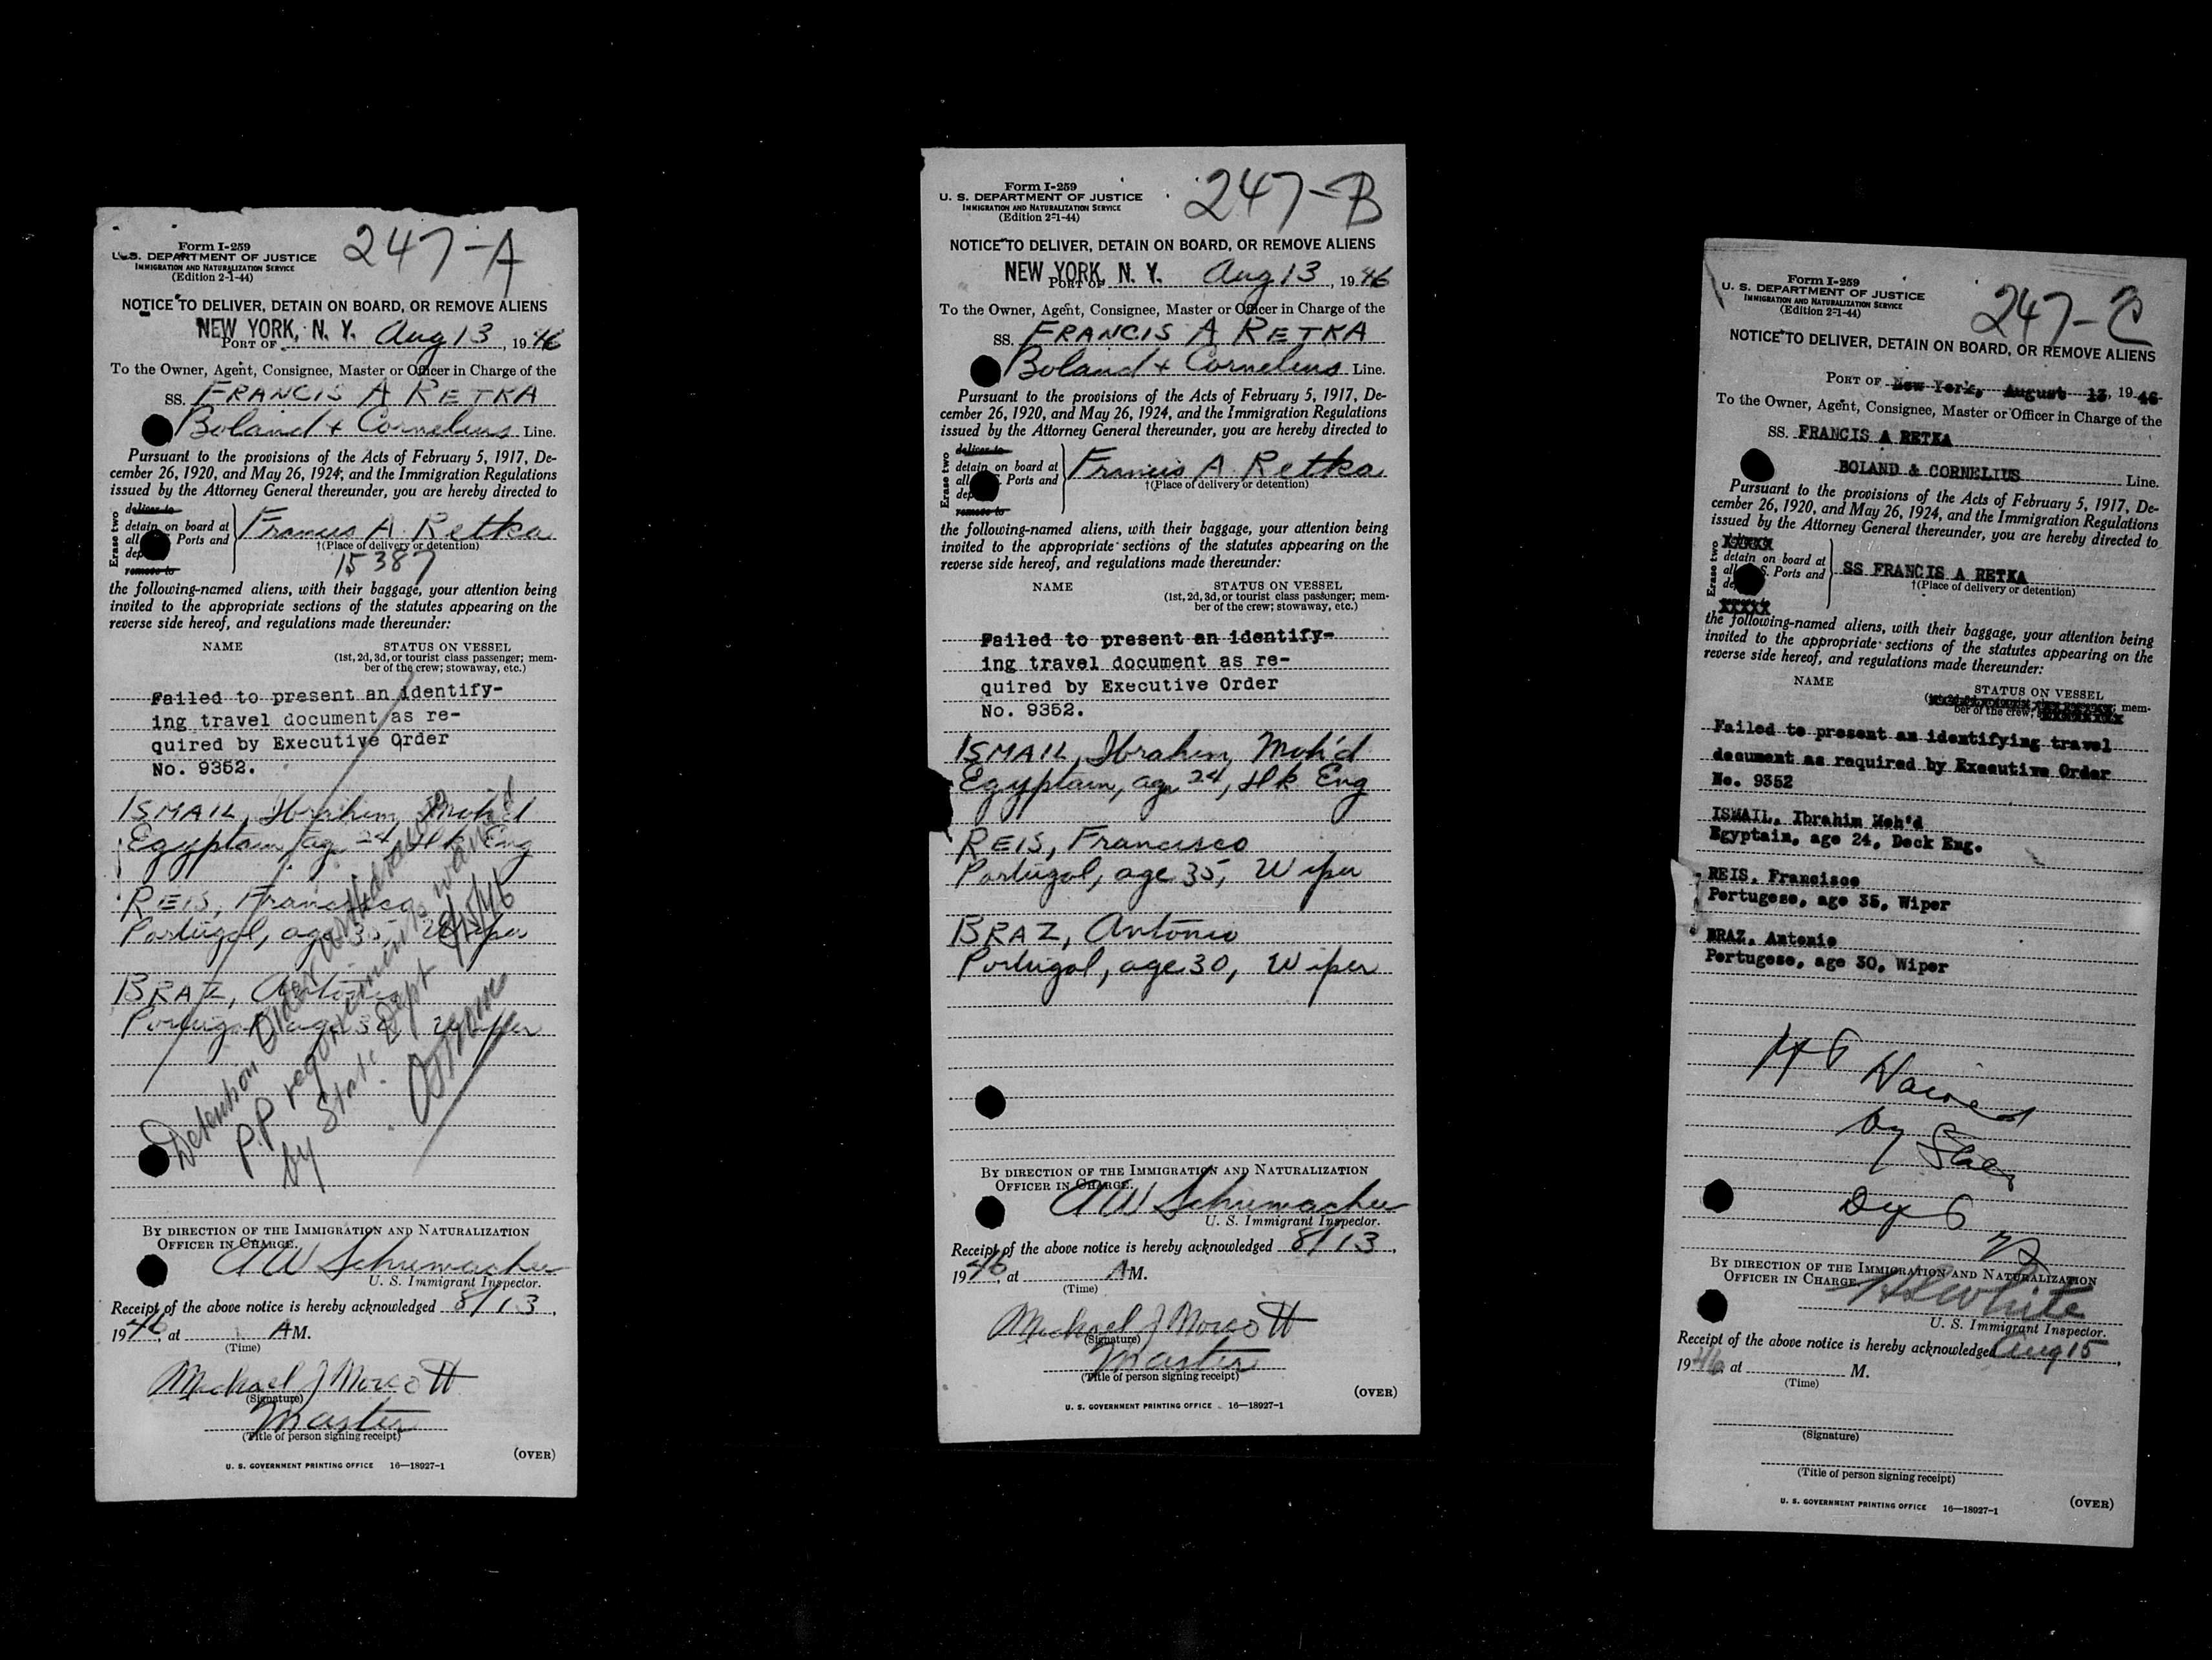 247-A
Form I-259
U. S. DEPARTMENT OF JUSTICE
IMMIGRATION AND NATURALIZATION SERVICE
(Edition 2-1-44)
NOTICE TO DELIVER, DETAIN ON BOARD, OR REMOVE ALIENS
NEW YORK, N. Y. Aug 13, 1946
PORT OF
To the Owner, Agent, Consignee, Master or Officer in Charge of the
SS. FRANCIS A RETKA
Boland + Cornelius Line.
Pursuant to the provisions of the Acts of February 5, 1917, De-
cember 26, 1920, and May 26, 1924, and the Immigration Regulations
issued by the Attorney General thereunder, you are hereby directed to
Erase two
deliver to
detain on board at
all Ports and
Francis A. Retka
†(Place of delivery or detention)
remove to
15387
the following-named aliens, with their baggage, your attention being
invited to the appropriate sections of the statutes appearing on the
reverse side hereof, and regulations made thereunder:
NAME STATUS ON VESSEL
(1st, 2d, 3d, or tourist class passenger; mem-
ber of the crew; stowaway, etc.)
Failed to present an identify-
ing travel document as re-
quired by Executive Order
No. 9352.
ISMAIL, Ibrahim, Moh'd
Egyptain, age 24, Dk Eng
REIS, Francisco
Portugal, age 35, Wiper
BRAZ, Antonio
Portugal, age 30, Wiper
Detention Order
P.P requirements waived
by State Dept 8/15/46
BY DIRECTION OF THE IMMIGRATION AND NATURALIZATION
OFFICER IN CHARGE.
A W Schumacher
U. S. Immigrant Inspector.
Receipt of the above notice is hereby acknowledged 8/13,
1946, at AM.
(Time)
Michael J Morcott
(Signature)
Master
(Title of person signing receipt)
(OVER)
U. S. GOVERNMENT PRINTING OFFICE 16—18927-1
247-B
Form I-259
U. S. DEPARTMENT OF JUSTICE
IMMIGRATION AND NATURALIZATION SERVICE
(Edition 2-1-44)
NOTICE TO DELIVER, DETAIN ON BOARD, OR REMOVE ALIENS
NEW YORK, N. Y. Aug 13, 1946
PORT OF
To the Owner, Agent, Consignee, Master or Officer in Charge of the
SS. FRANCIS A RETKA
Boland + Cornelius Line.
Pursuant to the provisions of the Acts of February 5, 1917, De-
cember 26, 1920, and May 26, 1924, and the Immigration Regulations
issued by the Attorney General thereunder, you are hereby directed to
Erase two
deliver to
detain on board at
all Ports and
Francis A. Retka
†(Place of delivery or detention)
remove to
the following-named aliens, with their baggage, your attention being
invited to the appropriate sections of the statutes appearing on the
reverse side hereof, and regulations made thereunder:
NAME STATUS ON VESSEL
(1st, 2d, 3d, or tourist class passenger; mem-
ber of the crew; stowaway, etc.)
Failed to present an identify-
ing travel document as re-
quired by Executive Order
No. 9352.
ISMAIL, Ibrahim, Moh'd
Egyptain, age 24, Dk Eng
REIS, Francisco
Portugal, age 35, Wiper
BRAZ, Antonio
Portugal, age 30, Wiper
BY DIRECTION OF THE IMMIGRATION AND NATURALIZATION
OFFICER IN CHARGE.
A W Schumacher
U. S. Immigrant Inspector.
Receipt of the above notice is hereby acknowledged 8/13,
1946, at AM.
(Time)
Michael J Morcott
(Signature)
Master
(Title of person signing receipt)
(OVER)
U. S. GOVERNMENT PRINTING OFFICE 16—18927-1
247-C
Form I-259
U. S. DEPARTMENT OF JUSTICE
IMMIGRATION AND NATURALIZATION SERVICE
(Edition 2-1-44)
NOTICE TO DELIVER, DETAIN ON BOARD, OR REMOVE ALIENS
PORT OF New York, August 13, 1946
To the Owner, Agent, Consignee, Master or Officer in Charge of the
SS. FRANCIS A RETKA
BOLAND & CORNELIUS Line.
Pursuant to the provisions of the Acts of February 5, 1917, De-
cember 26, 1920, and May 26, 1924, and the Immigration Regulations
issued by the Attorney General thereunder, you are hereby directed to
Erase two
XXXXX
detain on board at
all S. Ports and
SS FRANCIS A RETKA
†(Place of delivery or detention)
XXXXX
the following-named aliens, with their baggage, your attention being
invited to the appropriate sections of the statutes appearing on the
reverse side hereof, and regulations made thereunder:
NAME STATUS ON VESSEL
mem-
ber of the crew;
Failed to present an identifying travel
document as required by Executive Order
No. 9352
ISMAIL, Ibrahim Moh'd
Egyptain, age 24, Deck Eng.
REIS, Francisco
Portugese, age 35, Wiper
BRAZ, Antonio
Portugese, age 30, Wiper
Waived
by State
BY DIRECTION OF THE IMMIGRATION AND NATURALIZATION
OFFICER IN CHARGE.
White
U. S. Immigrant Inspector.
Receipt of the above notice is hereby acknowledged Aug 15,
1946 at M.
(Time)
(Signature)
(Title of person signing receipt)
(OVER)
U. S. GOVERNMENT PRINTING OFFICE 16—18927-1